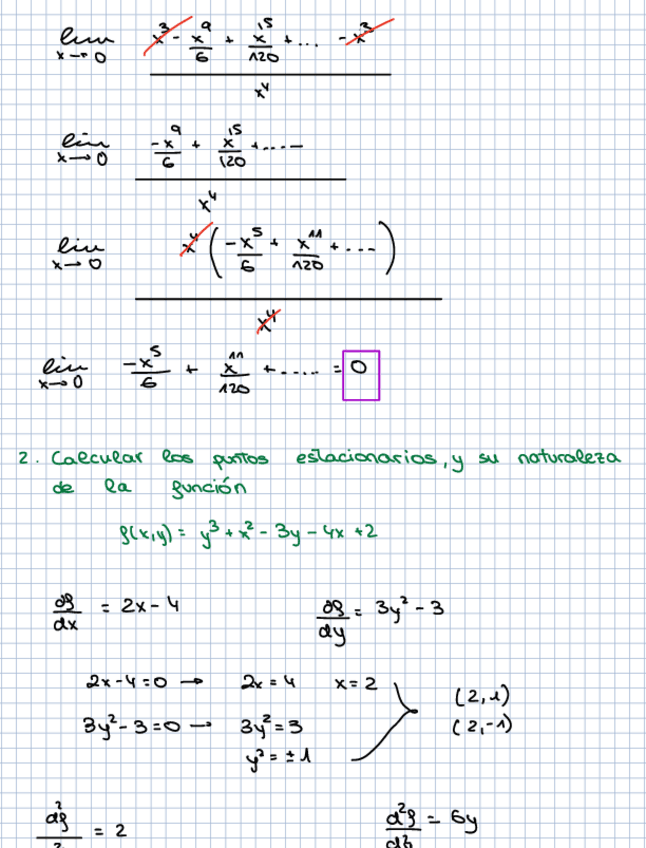 lim x→0 x³ - x⁹/6 + x¹⁵/120 + ... - x³
x⁴
lim x→0 -x⁹/6 + x¹⁵/120 + ....-
x⁴
lim x→0 x⁴ ( -x⁵/6 + x¹¹/120 + ... )
x⁴
lim x→0 -x⁵/6 + x¹¹/120 + ..... = 0
2. Calcular los puntos estacionarios, y su naturaleza
de la función
f(x,y) = y³ + x² - 3y - 4x + 2
∂f/dx = 2x - 4 ∂f/dy = 3y² - 3
2x - 4 = 0 → 2x = 4 x = 2
(2,1)
3y² - 3 = 0 → 3y² = 3
(2,-1)
y² = ±1
d²f = 2 d²f = 6y